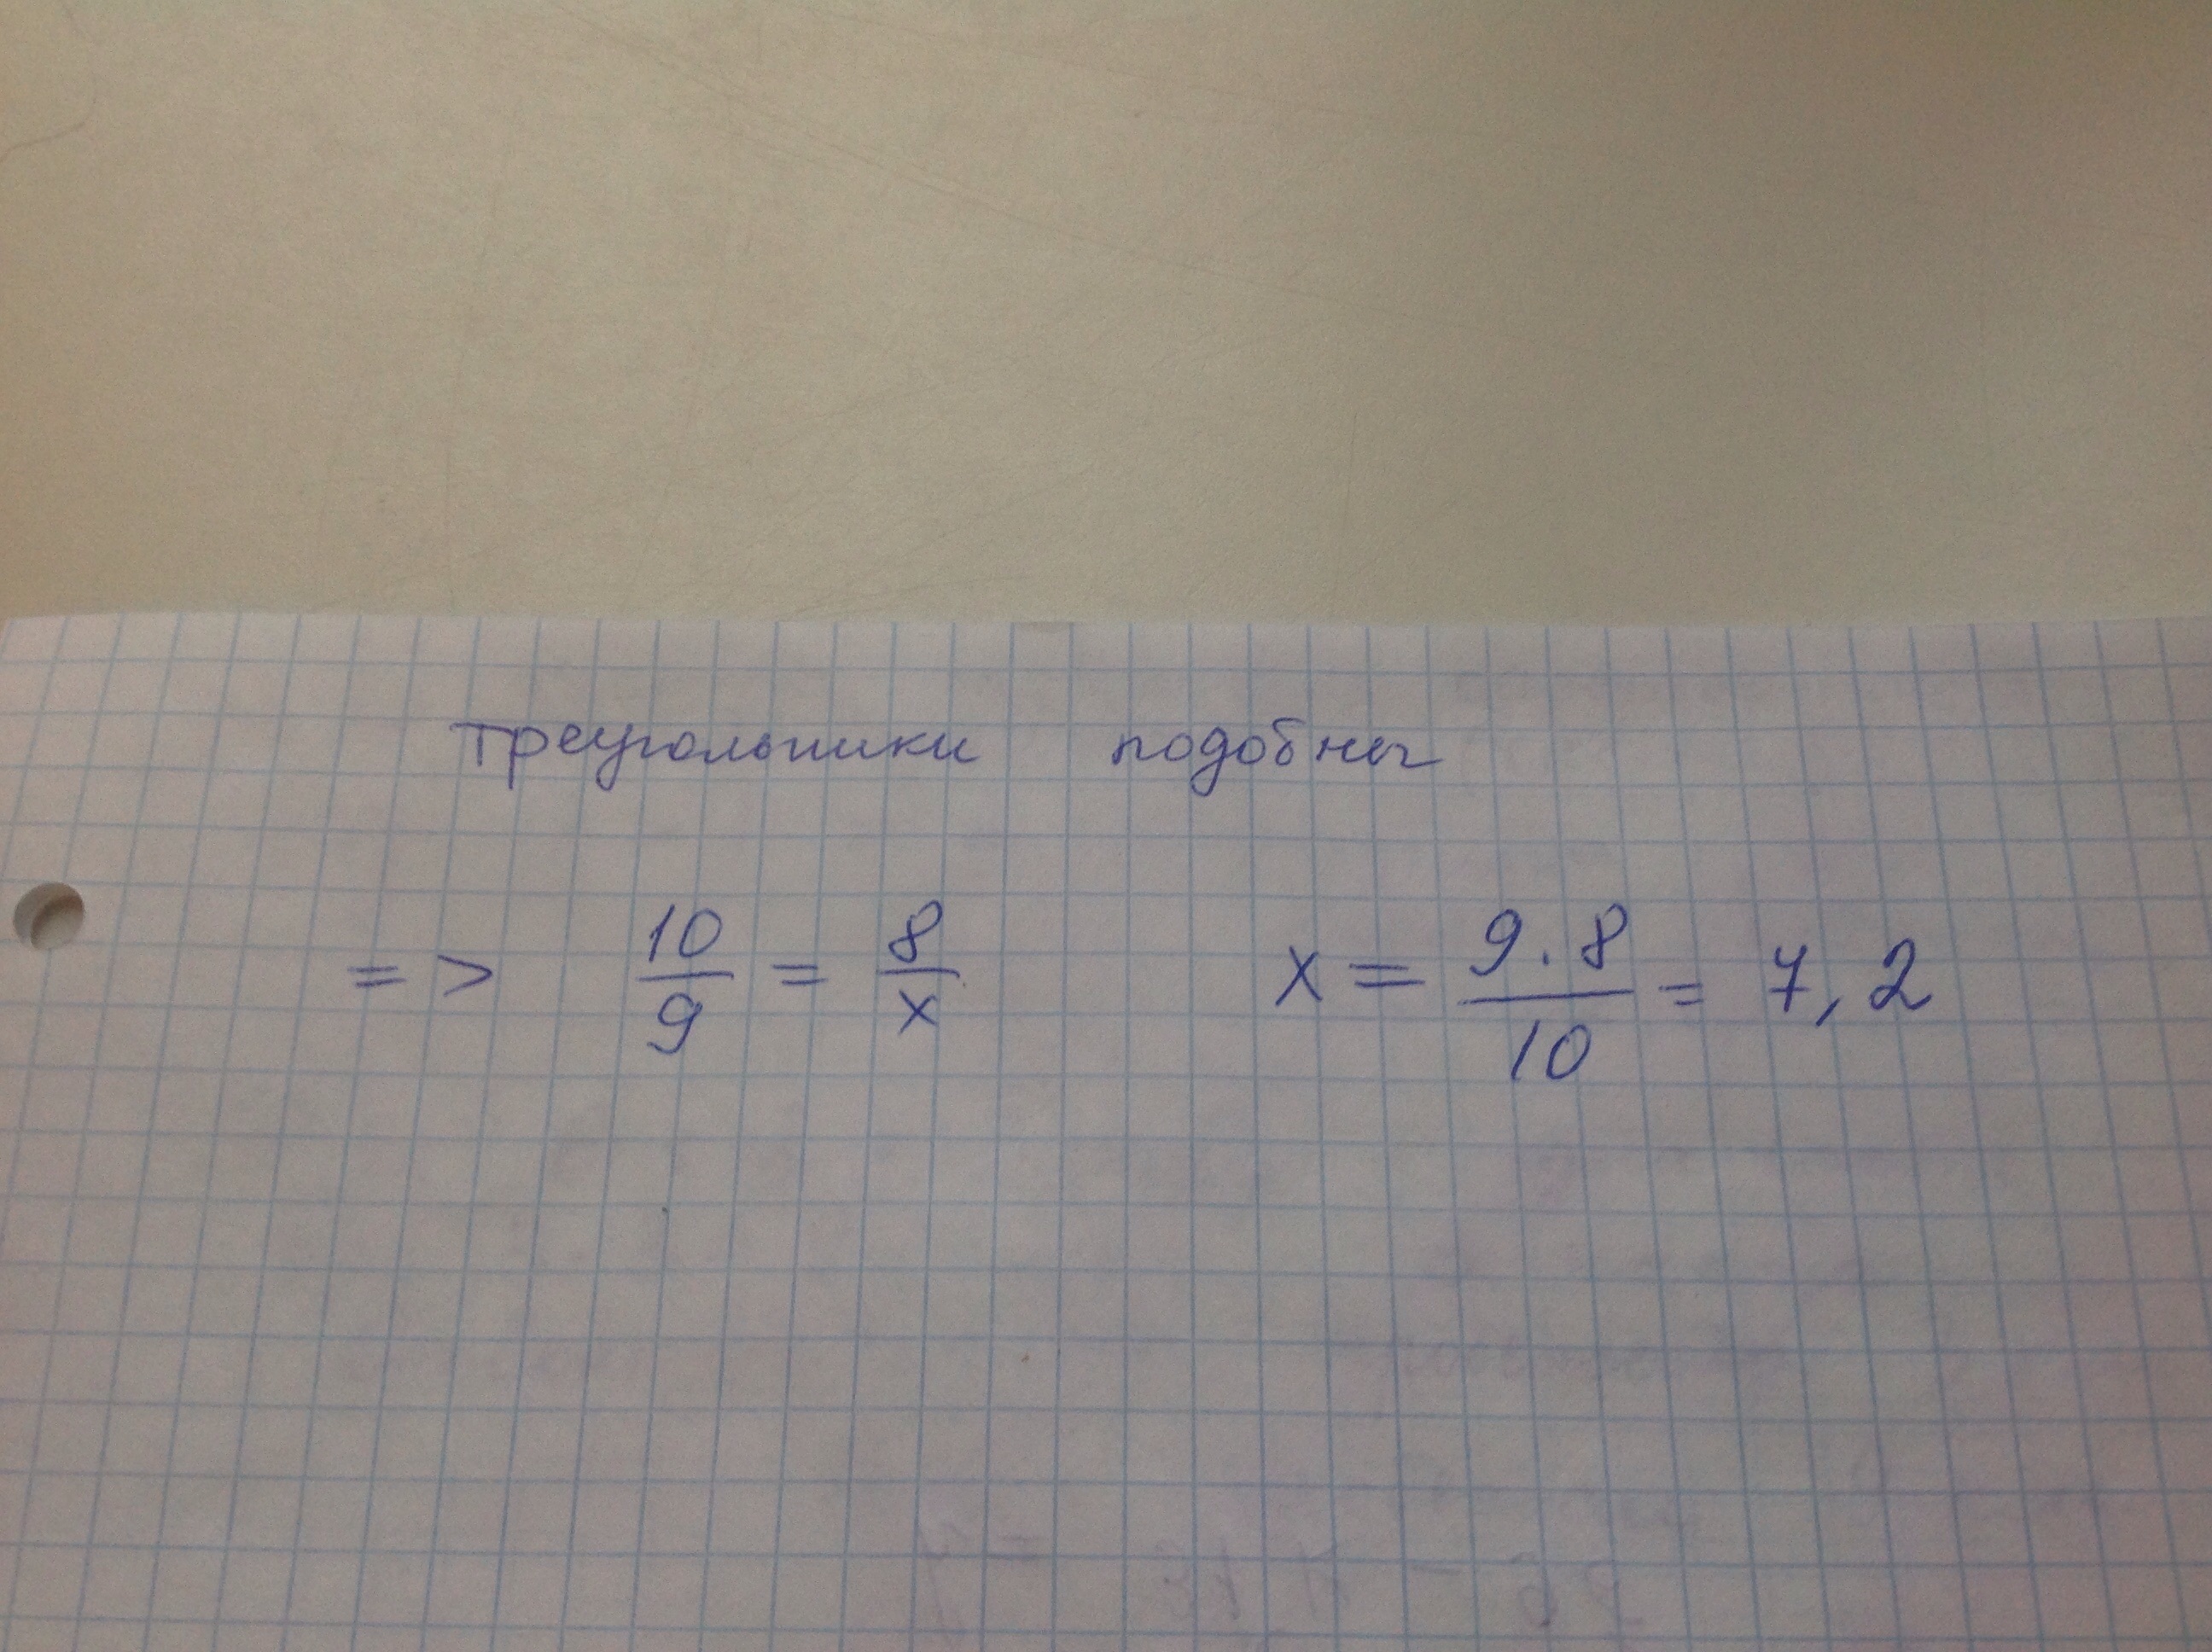 треугольники подобны
=> 10/9 = 8/x x = 9·8/10 = 7,2